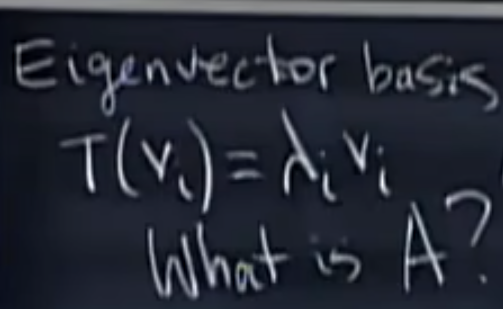 Eigenvector basis
T(vᵢ) = λᵢ vᵢ
What is A?